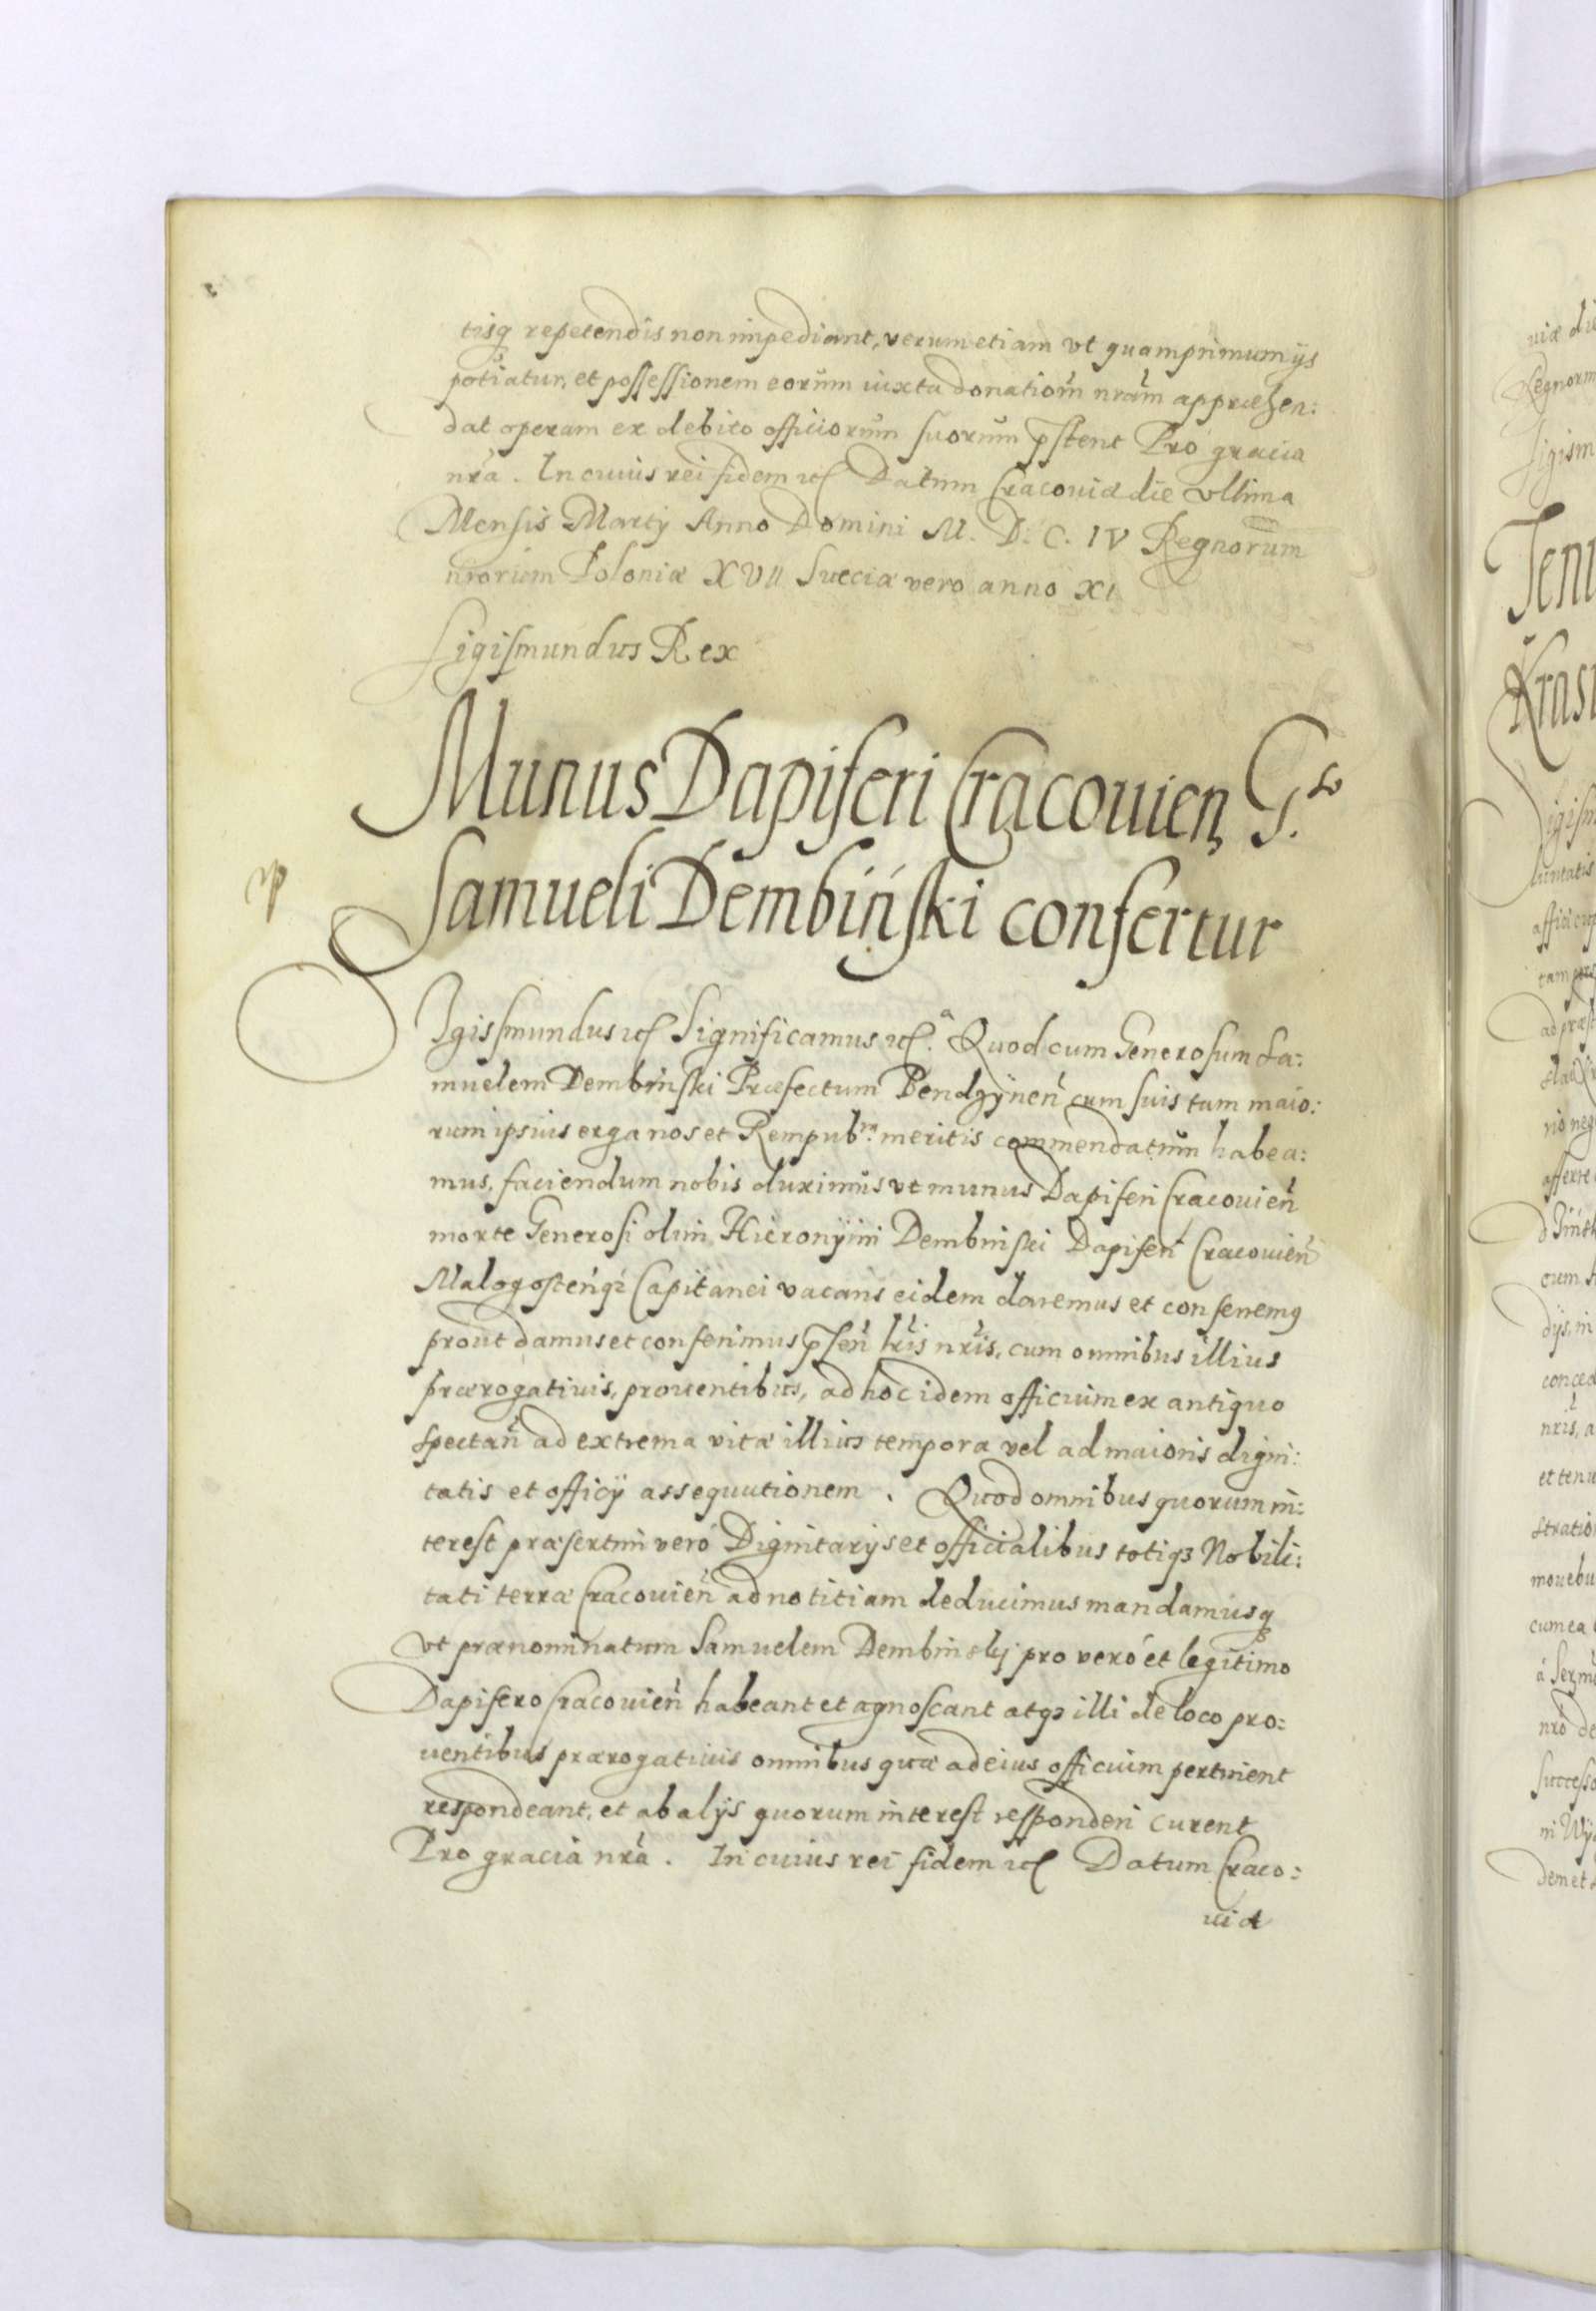 tisq repetendis non impediant, verum etiam vt quamprimum ijs
potiatur, et possessionem eorum iuxta donationẽ nrãm appræhen:
dat operam ex debito officiorum suorum pstent Pro gracia
nrã. In cuius rei fidem etc Datum Cracouiæ die vltima
Mensis Martij Anno Domini M. D. C. IV Regnorum
nrorum Poloniæ XVII Sueciæ vero anno XI
Sigismundus Rex
Munus Dapiferi Cracouien G.so
Samueli Dembińſki confertur
Sigissmundus etc Significamus etc.a Quod cum Generosum Sa:
muelem Dembinſki Præfectum Bendzÿnen̄ cum suis tum maio:
rum ipsius erga nos et Rempub.m meritis commendatum habea:
mus, faciendum nobis duximus vt munus Dapiferi Cracouien̄
morte Generosi olim Hieronÿmi Dembinſki Dapiferi Cracouien̄
Malogosten̄qz Capitanei vacans eidem daremus et conferemq
prout damus et conferimus pſen̄ lrĩs nrĩs, cum omnibus illius
prærogatiuis, prouentibus, ad hoc idem officium ex antiquo
spectan̄ ad extrema vitæ illius tempora vel ad maioris digni:
tatis et officÿ assequutionem. Quod omnibus quorum in:
terest præsertim vero Dignitarijs et officialibus totiqz Nobili:
tati terræ Cracouien̄ ad notitiam deducimus mandamusq
vt prænominatum Samuelem Dembinskj pro vero et legitimo
Dapifero Cracouien̄ habeant et agnoscant atqz illi de loco pro:
uentibus prærogatiuis omnibus quæ ad eius officium pertinent
respondeant, et ab alÿs quorum interest responderi curent
Pro gracia nrã. In cuius rei fidem etc Datum Craco:
uiæ